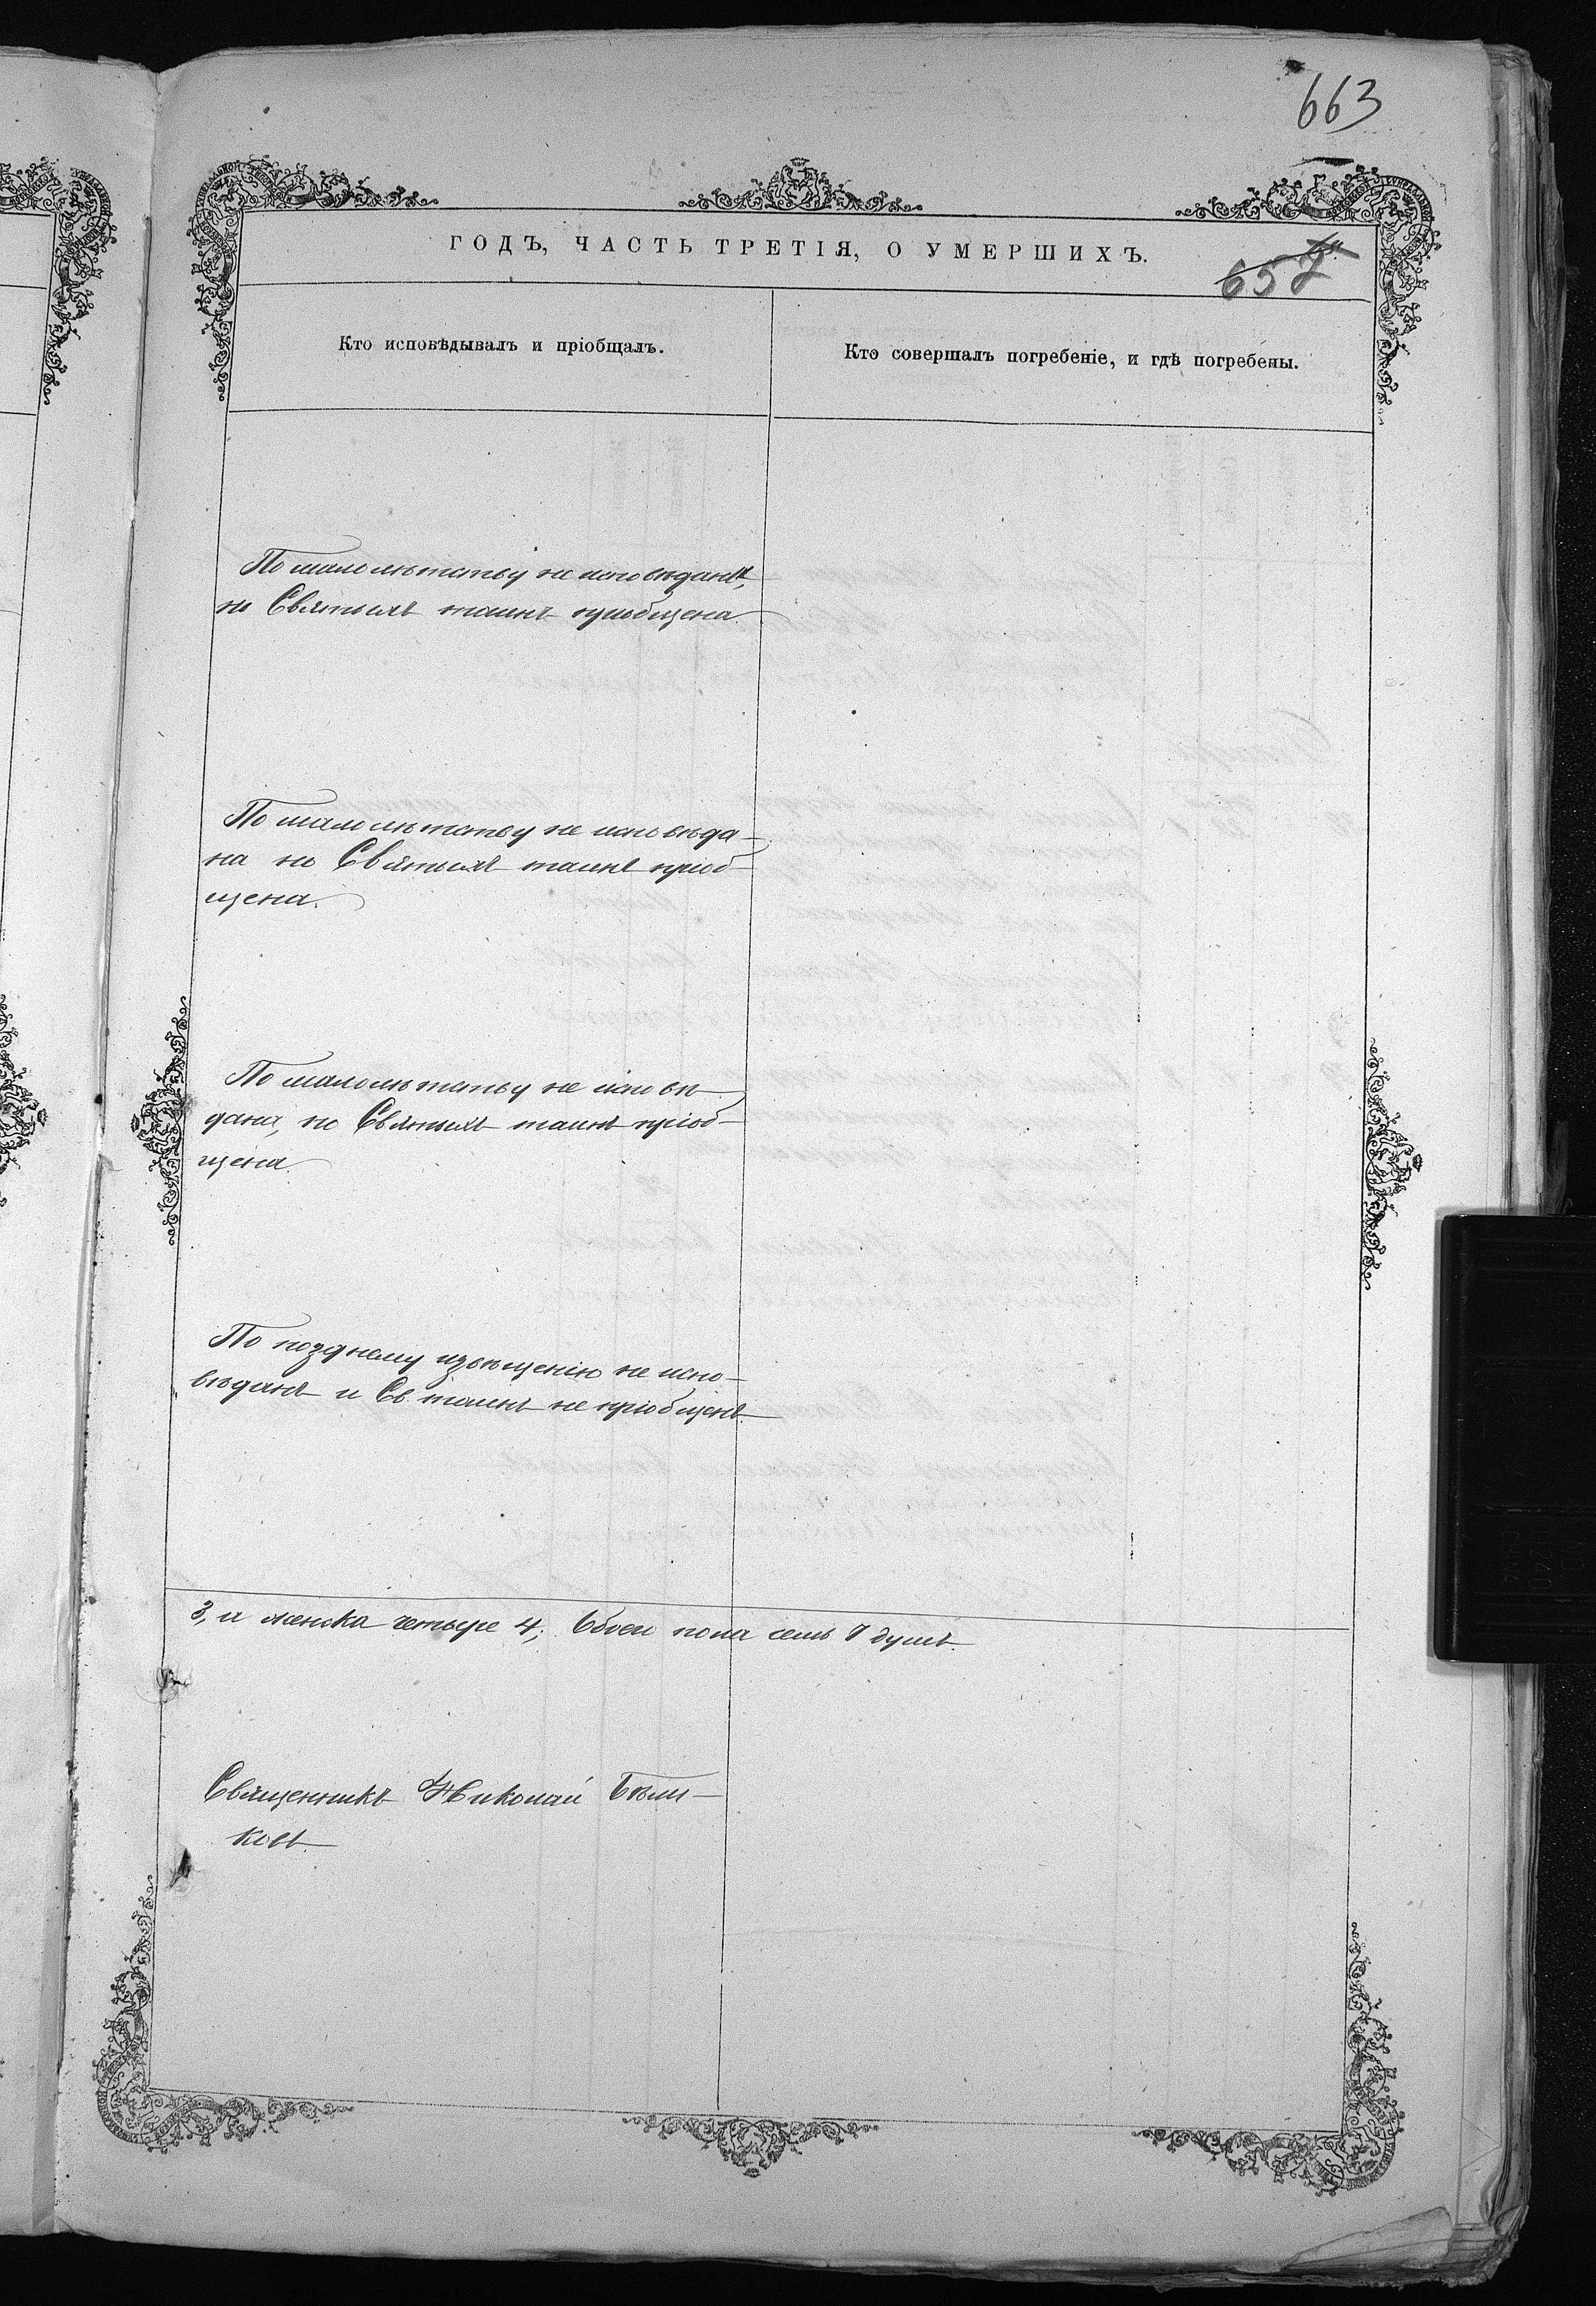 663
ГОДЪ, ЧАСТЬ ТРЕТІЯ, О УМЕРШИХЪ.
657
Кто исповѣдывалъ и пріобщалъ.
Кто совершалъ погребеніе, и гдѣ погребены.
По малолѣтству не исповѣдана,
но Святыхъ таинъ пріобщена.
По малолѣтству не исповѣда-
на но Святыхъ таинъ пріоб-
щена.
По малолѣтству не исповѣ-
дана, но Святыхъ таинъ пріоб-
щена.
По позднему извѣщенію не испо-
вѣданъ и Св. таинъ не пріобщенъ.
3, и женска четыре 4, Обоего пола семь 7 душъ.
Священникъ Николай Бѣли-
ковъ.